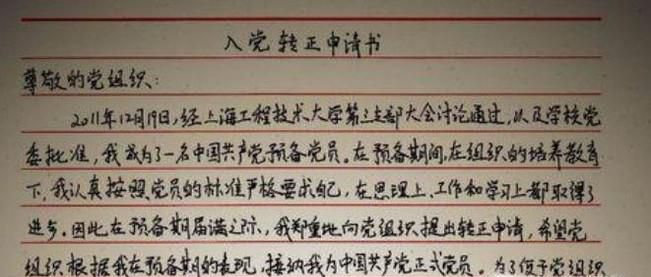 入党转正申请书
尊敬的党组织：
2011年12月19日，经上海工程技术大学第三支部大会讨论通过，以及学校党
委批准，我成为了一名中国共产党预备党员。在预备期间，在组织的培养教育
下，我认真按照党员的标准严格要求自己，在思理上、工作和学习上都取得了
进步。因此在预备期届满之际，我郑重地向党组织提出转正申请，希望党
组织根据我在预备期的表现，接纳我为中国共产党正式党员。为了便于党组织